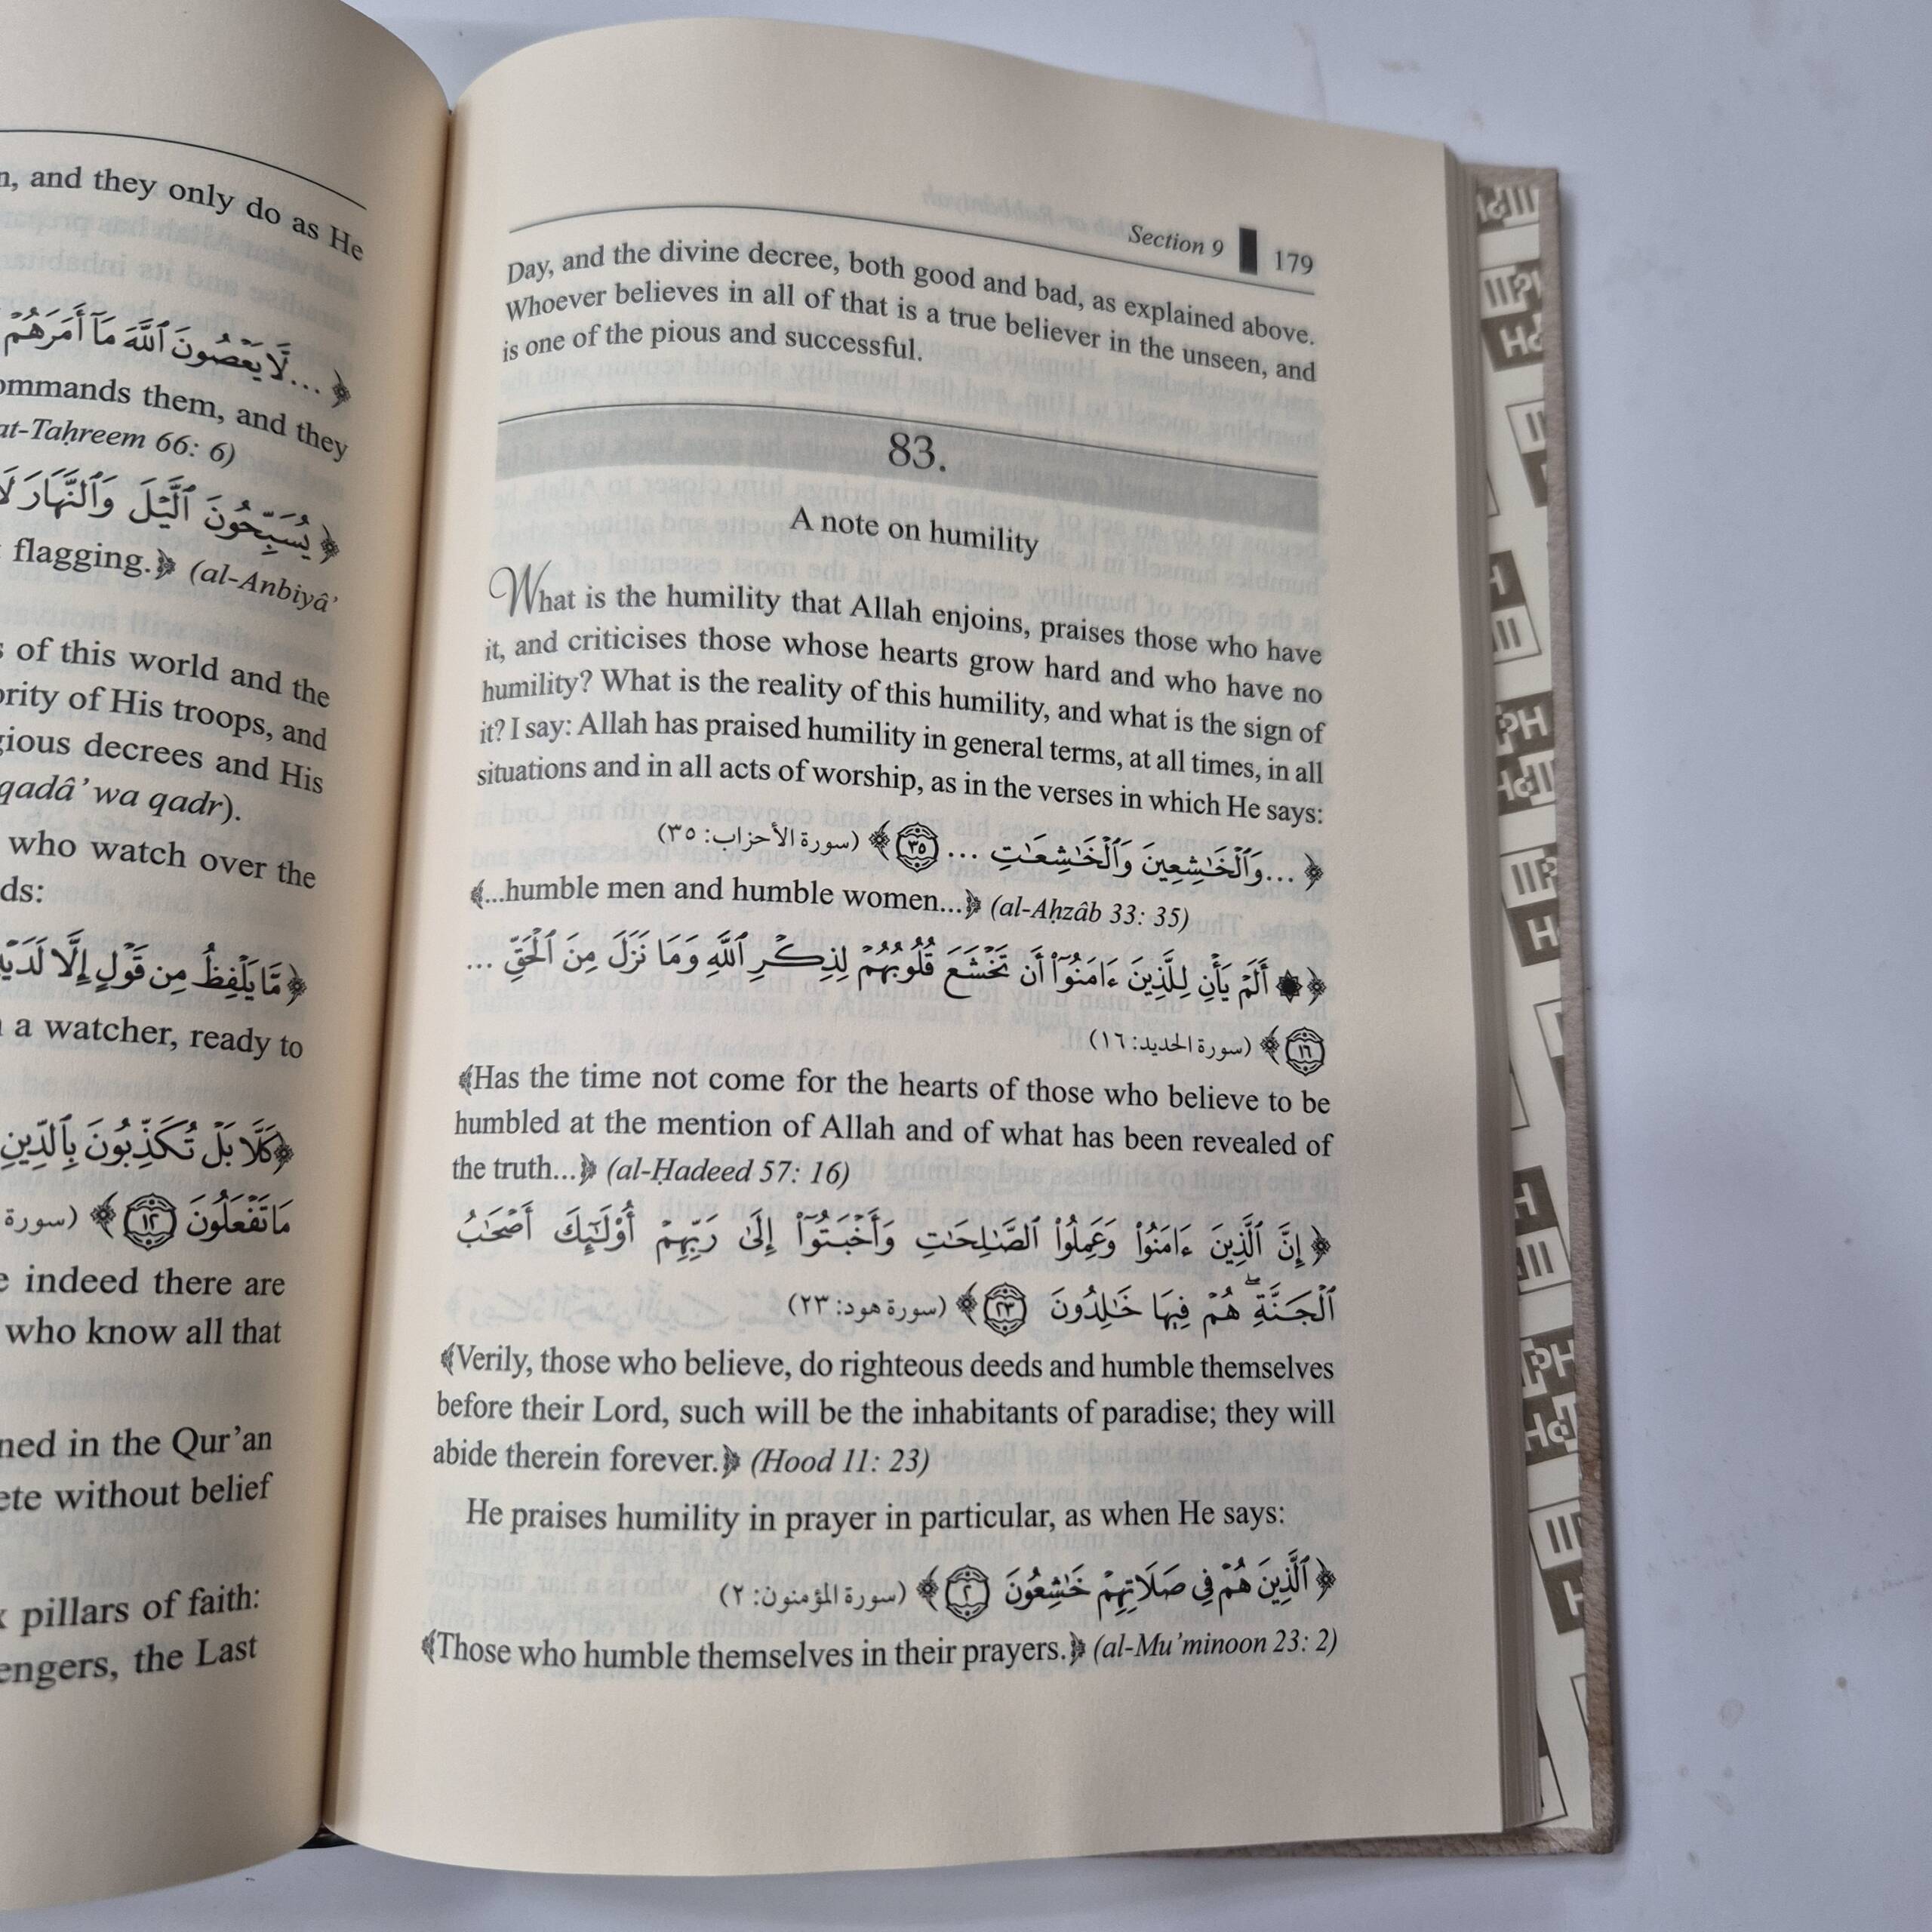 n, and they only do as He
﴿ ...لَّا يَعْصُونَ ٱللَّهَ مَآ أَمَرَهُمْ
ommands them, and they
at-Taḥreem 66: 6)
﴿ يُسَبِّحُونَ ٱلَّيْلَ وَٱلنَّهَارَ لَا
flagging.﴾ (al-Anbiyâ’
s of this world and the
ority of His troops, and
gious decrees and His
qadâ’ wa qadr).
who watch over the
ds:
﴿ مَّا يَلْفِظُ مِن قَوْلٍ إِلَّا لَدَيْهِ
a watcher, ready to
﴿ كَلَّا بَلْ تُكَذِّبُونَ بِٱلدِّينِ
مَا تَفْعَلُونَ ١٢ ﴾ (سورة
e indeed there are
who know all that
ned in the Qur’an
ete without belief
x pillars of faith:
engers, the Last
Section 9 179
Day, and the divine decree, both good and bad, as explained above.
Whoever believes in all of that is a true believer in the unseen, and
is one of the pious and successful.
83.
A note on humility
What is the humility that Allah enjoins, praises those who have
it, and criticises those whose hearts grow hard and who have no
humility? What is the reality of this humility, and what is the sign of
it? I say: Allah has praised humility in general terms, at all times, in all
situations and in all acts of worship, as in the verses in which He says:
﴿ ...وَٱلْخَـٰشِعِينَ وَٱلْخَـٰشِعَـٰتِ ... ٣٥ ﴾ (سورة الأحزاب: ٣٥)
﴾...humble men and humble women...﴿ (al-Aḥzâb 33: 35)
﴿ ۞ أَلَمْ يَأْنِ لِلَّذِينَ ءَامَنُوٓا۟ أَن تَخْشَعَ قُلُوبُهُمْ لِذِكْرِ ٱللَّهِ وَمَا نَزَلَ مِنَ ٱلْحَقِّ ...
١٦ ﴾ (سورة الحديد: ١٦)
﴾Has the time not come for the hearts of those who believe to be
humbled at the mention of Allah and of what has been revealed of
the truth...﴿ (al-Ḥadeed 57: 16)
﴿ إِنَّ ٱلَّذِينَ ءَامَنُوا۟ وَعَمِلُوا۟ ٱلصَّـٰلِحَـٰتِ وَأَخْبَتُوٓا۟ إِلَىٰ رَبِّهِمْ أُو۟لَـٰٓئِكَ أَصْحَـٰبُ
ٱلْجَنَّةِ ۖ هُمْ فِيهَا خَـٰلِدُونَ ٢٣ ﴾ (سورة هود: ٢٣)
﴾Verily, those who believe, do righteous deeds and humble themselves
before their Lord, such will be the inhabitants of paradise; they will
abide therein forever.﴿ (Hood 11: 23)
He praises humility in prayer in particular, as when He says:
﴿ ٱلَّذِينَ هُمْ فِى صَلَاتِهِمْ خَـٰشِعُونَ ٢ ﴾ (سورة المؤمنون: ٢)
﴾Those who humble themselves in their prayers.﴿ (al-Mu’minoon 23: 2)